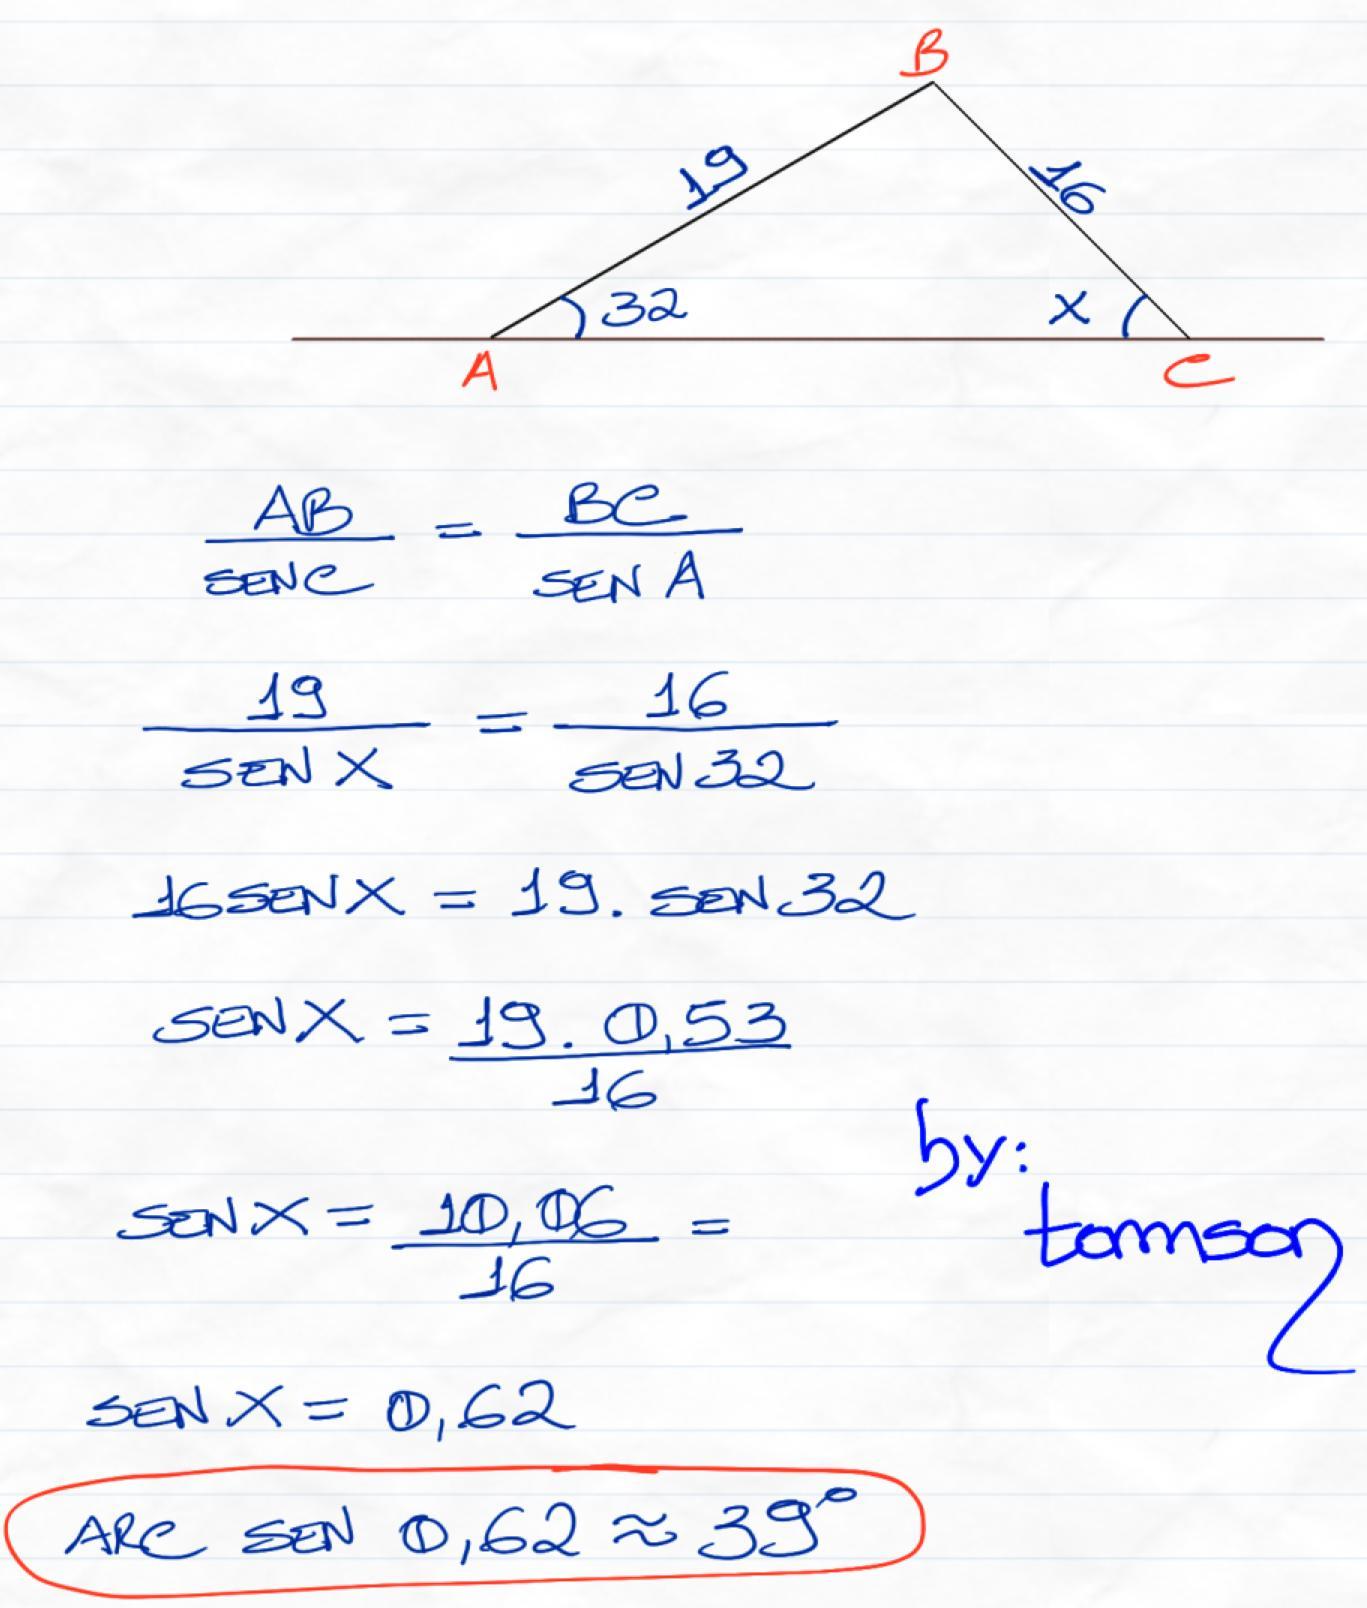 B
19
16
32
x
A
C
AB / SEN C = BC / SEN A
19 / SEN X = 16 / SEN 32
16 SEN X = 19 . SEN 32
SEN X = 19 . 0,53 / 16
by:
SEN X = 10,06 / 16 =
tomson
SEN X = 0,62
ARC SEN 0,62 ≈ 39°